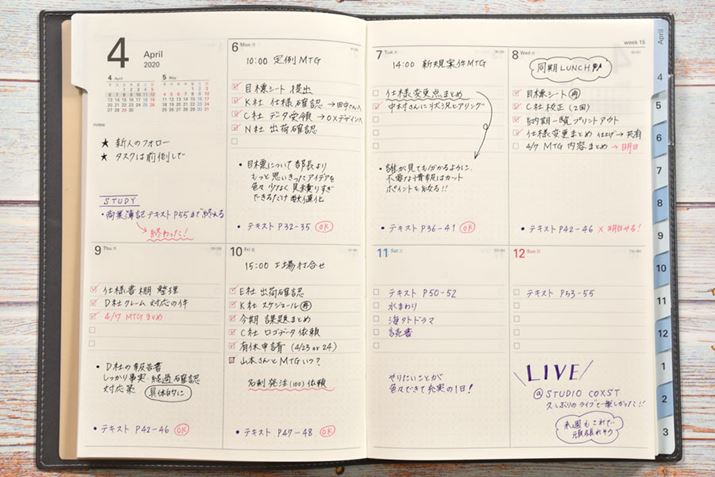 4 April
2020
notes
★ 新人のフォロー
★ タスクは前倒しで
STUDY
・商業簿記テキスト P45まで終える
終わった!
6 Mon 月
10:00 定例MTG
目標シート 提出
K社 仕様確認 →田中さんへ
C社 データ受領 →OXデザインへ
N社 出荷確認
・目標について部長より
もっと思いきったアイデアを
・テキスト P32-35 OK
7 Tue 火
14:00 新規案件MTG
仕様変更点まとめ
中村さんに状況ヒアリング
・誰が見てもわかるように、
不要な情報はカット
・テキスト P36-41 OK
week 15
8 Wed 水
同期LUNCH
目標シート 再
C社 校正 (2回)
納期一覧プリントアウト
仕様変更まとめ 仕上げ→共有
4/7 MTG 内容まとめ →明日
・テキスト P42-46 × 明日やる!
9 Thu 木
仕様書棚 整理
D社クレーム対応の件
4/7 MTGまとめ
・D社の報告書
しっかり事実・経過確認
対応策 具体的に
・テキスト P42-46 OK
10 Fri 金
15:00 工場打合せ
E社 出荷確認
K社 スケジュール 再
今期 課題まとめ
C社 ロゴデータ依頼
有休申請 (4/23 or 24)
山本さんとMTGいつ?
名刺発注(100)依頼
・テキスト P47-48 OK
11 Sat 土
テキスト P50-52
水まわり
海外ドラマ
読書
やりたいことが
色々できて充実の1日!
12 Sun 日
テキスト P53-55
LIVE
@STUDIO COXST
久しぶりのライブで楽しかった!!
来週もこれで
頑張れそう
April
4
5
6
7
8
9
10
11
12
1
2
3